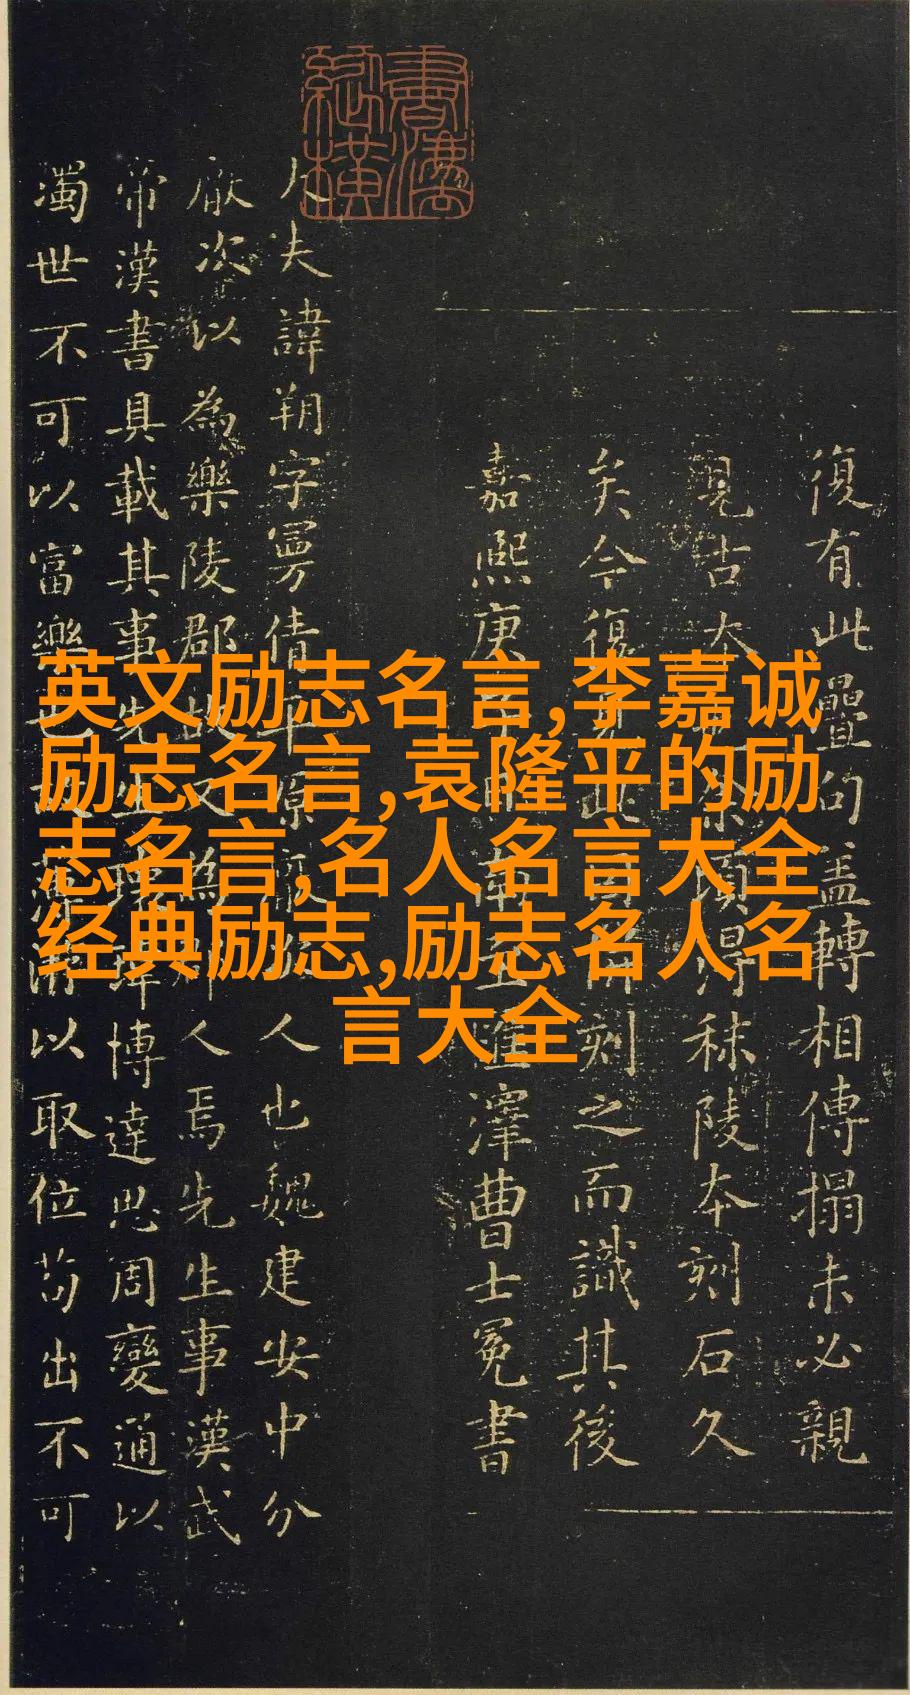 英文励志名言,李嘉诚
励志名言,袁隆平的励
志名言,名人名言大全
经典励志,励志名人名
言大全
復有此疊句盖轉相傳搨未必親
見古本頃得秣陵本刻石久
矣今復刻之而識其後
嘉熙庚澤曹士冕書
夫諱朔字曼倩平原人也魏建安中分
厭次以為樂陵郡故又為人焉先生事漢武
帝漢書具載其事先生博達思周變通以
濁世不可以富樂也以取位苟出不可